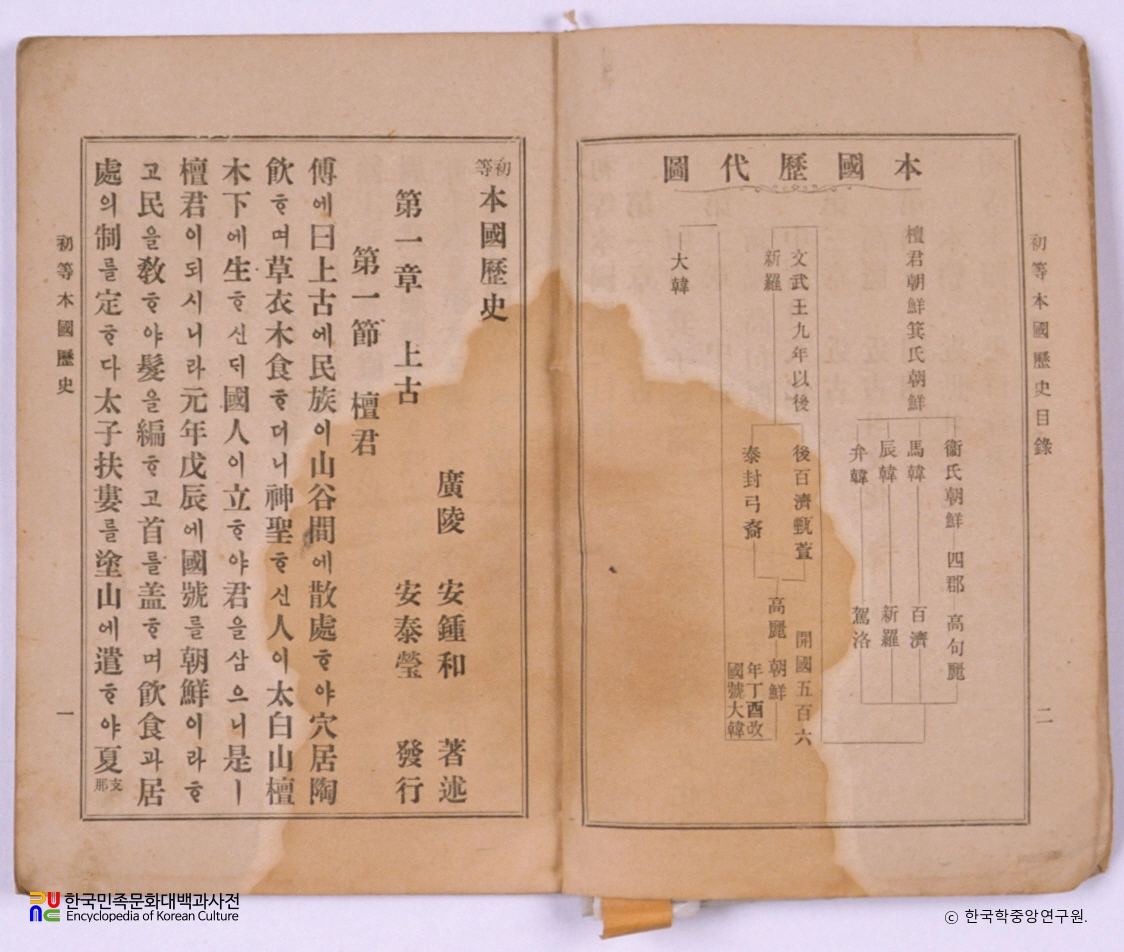 初等本國歷史目錄
二
本國歷代圖
檀君朝鮮 箕氏朝鮮
衞氏朝鮮 四郡 高句麗
馬韓 百濟
辰韓 新羅
弁韓 駕洛
文武王九年以後
新羅
後百濟甄萱
泰封弓裔
高麗 朝鮮
開國五百六
年丁酉改
國號大韓
大韓
初等本國歷史
廣陵 安鍾和 著述
安泰瑩 發行
第一章 上古
第一節 檀君
傅에曰上古에民族이山谷間에散處ᄒᆞ야穴居陶
飮ᄒᆞ며草衣木食ᄒᆞ더니神聖ᄒᆞ신人이太白山檀
木下에生ᄒᆞ신ᄃᆡ國人이立ᄒᆞ야君을삼으니是ㅣ
檀君이되시니라元年戊辰에國號를朝鮮이라ᄒᆞ
고民을敎ᄒᆞ야髮을編ᄒᆞ고首를盖ᄒᆞ며飮食과居
處의制를定ᄒᆞ다太子扶婁를塗山에遣ᄒᆞ야夏支那
初等本國歷史
一
한국민족문화대백과사전
Encyclopedia of Korean Culture
© 한국학중앙연구원.